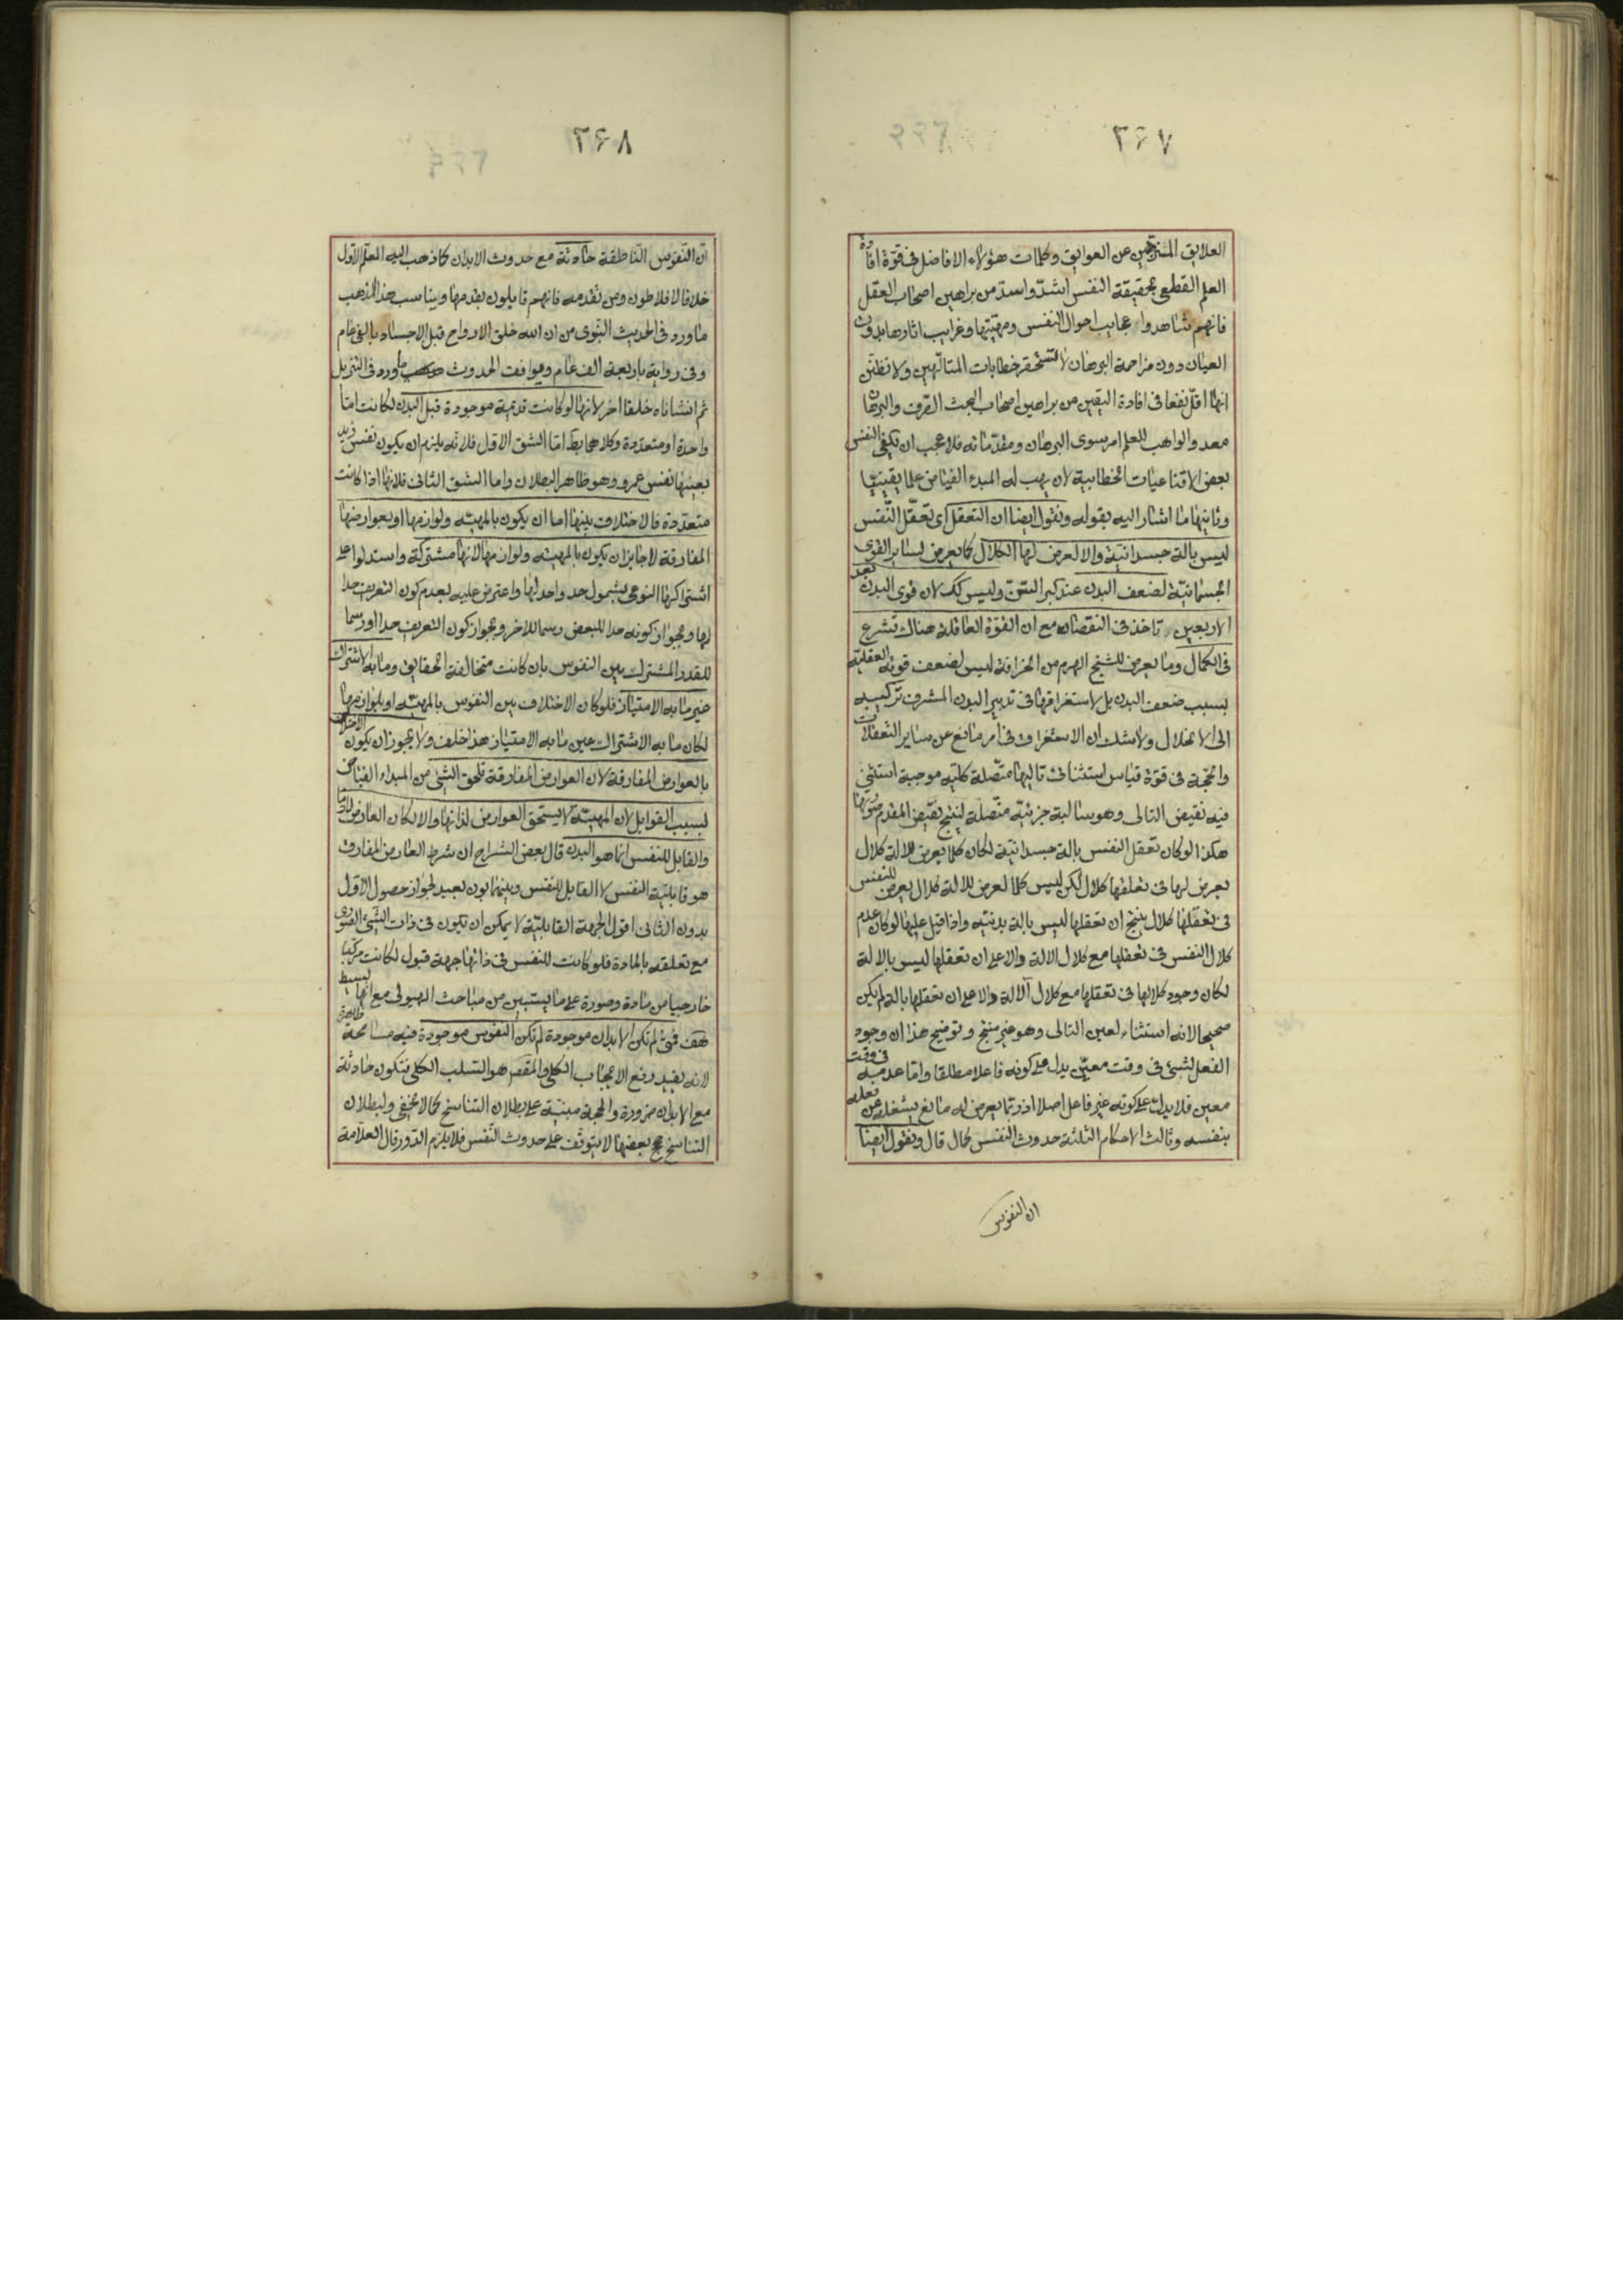 ٣٦٧
العلايق المنزهين عن العوايق وكلمات هؤلاء الافاضل فى قوة افادة
العلم القطعى بحقيقة النفس اشد واسد من براهين اصحاب العقل
فانهم شاهدوا عجايب احوال النفس ومهيتها وغرايب اثارها بدون
العيان دون مزاحمة البرهان لا تستحقر خطابات المتالّهين ولا تظنن
انها اقل نفعا فى افادة اليقين من براهين اصحاب البحث الصرف والبرهان
معد والواهب للعلم امر سوى البرهان ومقدماته فلا عجب ان تكفى النفس
بعض الاقناعيات الخطابية لان يهب له المبدء الفياض علما يقينيا
وثانيها ما اشار اليه بقوله ونقول ايضا ان التعقل اى تعقل النفس
ليس بالة جسدانية والا لعرض لها الكلال كما يعرض لساير القوى
الجسمانية لضعف البدن عند كبر السن وليس كك لان قوى البدن بعد
الاربعين تاخذ فى النقصان مع ان القوة العاقلة هناك تشرع
فى الكمال وما يعرض للشيخ الهرم من الخرافة ليس لضعف قوته العقلية
بسبب ضعف البدن بل لاستغراقها فى تدبير البدن المشرف تركيبه
الى الانحلال ولا شك ان الاستغراق فى امر مانع عن ساير التعقلات
والحجة فى قوة قياس استثنائى تاليها متصلة كلية موجبة استثنى
فيه نقيض التالى وهو سالبة جزئية متصلة لينتج نقيض المقدم صورتها
هكذا لو كان تعقل النفس بالة جسدانية لكان كلما يعرض للالة كلال
يعرض لها فى تعلقها كلال لكن ليس كلما لعرض للالة كلال يعرض للنفس
فى تعقلها كلال ينتج ان تعقلها ليس بالة بدنية واذا قيل عليها لو كان عدم
كلال النفس فى تعقلها مع كلال الالة والا على ان تعقلها ليس بالالة
لكان وجود كلالها فى تعقلها مع كلال آلالة والا على ان تعقلها بالة لم يكن
صحيحا لانه استثناء لعين التالى وهو غير منتج وتوضيح هذا ان وجود
الفعل لشئ فى وقت معين يدل على كونه فاعلا مطلقا واما عدمية فى وقت
معين فلا يدل على كونه غير فاعل اصلا اذ ربما يعرض له مانع يشغله عن فعله
بنفسه وثالث الاحكام الثلثة حدوث النفس كما قال ونقول ايضا
ان النفوس
٣٦٨
ان النفوس الناطقة حادثة مع حدوث الابدان كما ذهب اليه المعلم الاول
خلافا لافلاطون ومن تقدمه فانهم قايلون بقدمها ويناسب هذا المذهب
ما ورد فى الحديث النبوى من ان الله خلق الارواح قبل الاجساد بالفى عام
وفى رواية باربعة الف عام ويوافقت الحدوث ما ورد فى التنزيل
ثم انشاناه خلقا اخر لانها لو كانت قديمة موجودة قبل البدن لكانت اما
واحدة او متعددة وكلاهما بط اما الشق الاول فلانه يلزم ان يكون نفس زيد
بعينها نفس عمرو وهو ظاهر البطلان واما الشق الثانى فلانها اذا كانت
متعددة فالاختلاف بينها اما ان يكون بالمهية ولوازمها او بعوارضها
المفارقة لا جايز ان يكون بالمهية ولوازمها لانها مشتركة واستدلوا على
اشتراكها النوعى بشمول حد واحد لها واعترض عليه بعدم كون التعريف حدا
لها وبجواز كونه حدا للبعض رسما للاخر وبجواز كون التعريف حدا او رسما
للقدر المشترك بين النفوس بان كانت متخالفة الحقايق وما به الاشتراك
غير ما به الامتياز فلو كان الاختلاف بين النفوس بالمهية او بلوازمها
لكان ما به الاشتراك عين ما به الامتياز هذا خلف ولا يجوز ان يكون الاختلاف
بالعوارض المفارقة لان العوارض المفارقة تلحق الشئ من المبداء الفياض
بسبب القوابل لان المهية لا يستحق العوارض لذاتها والا لكان العارض لازما
والقابل للنفس انما هو البدن قال بعض الشراح ان شرط العارض المفارق
هو قابلية النفس لا القابل للنفس وبينهما بون بعيد لجواز حصول الاول
بدون الثانى اقول الجهة القابلية لا يمكن ان يكون فى ذات الشئ الصورى
مع تعلقه بالمادة فلو كانت للنفس فى ذاتها جهة قبول لكانت مركبا
خارجيا من مادة وصورة على ما يستبين من مباحث الهيولى مع انها بسيط
هف فمتى لم تكن الابدان موجودة لم تكن النفوس موجودة فيه مسامحة ظاهرة
لانه يفيد رفع الايجاب الكلى والمقصر هو السلب الكلى فتكون حادثة
مع الابدان ضرورة والحجة مبنية على بطلان التناسخ كما لا يخفى ولبطلان
التناسخ حجج بعضها لا يتوقف على حدوث النفس فلا يلزم الدور قال العلامة